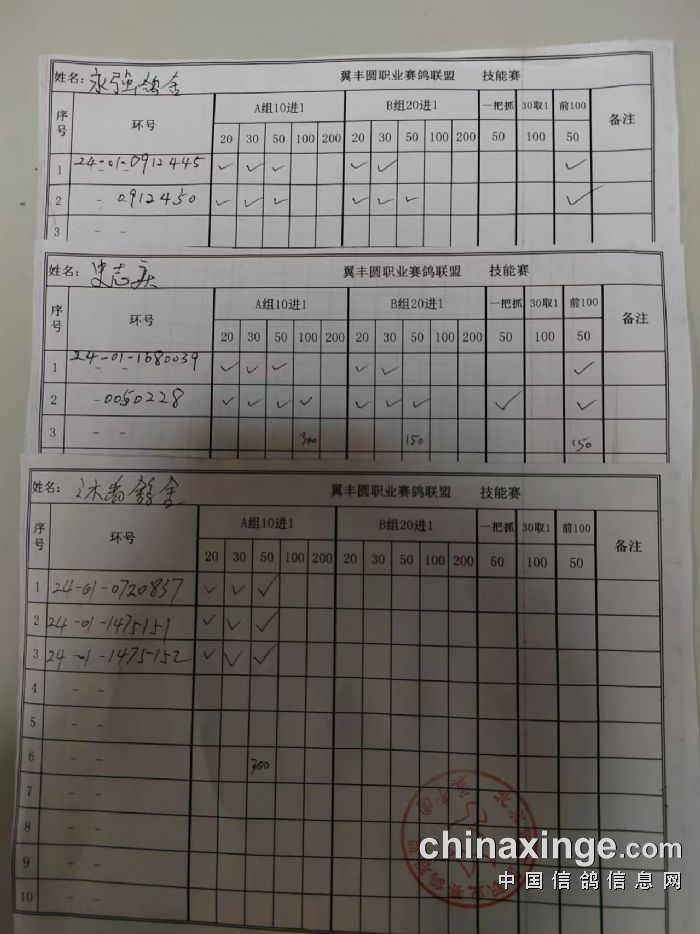 姓名： 永强鸽舍 翼丰圆职业赛鸽联盟 技能赛
序号 环号 A组10进1 B组20进1 一把抓 30取1 前100 备注
20 30 50 100 200 20 30 50 100 200 50 100 50
1 24-01-0912445 ✓ ✓ ✓ ✓ ✓ ✓
2 - 0912450 ✓ ✓ ✓ ✓ ✓ ✓ ✓
3 - -
姓名： 史志庆 翼丰圆职业赛鸽联盟 技能赛
序号 环号 A组10进1 B组20进1 一把抓 30取1 前100 备注
20 30 50 100 200 20 30 50 100 200 50 100 50
1 24-01-1680039 ✓ ✓ ✓ ✓ ✓ ✓
2 -0050228 ✓ ✓ ✓ ✓ ✓ ✓ ✓ ✓ ✓
3 - - 300 150 150
姓名： 鸽舍 翼丰圆职业赛鸽联盟 技能赛
序号 环号 A组10进1 B组20进1 一把抓 30取1 前100 备注
20 30 50 100 200 20 30 50 100 200 50 100 50
1 24-01-0720837 ✓ ✓ ✓
2 24-01-1475151 ✓ ✓ ✓
3 24-01-1475152 ✓ ✓ ✓
4 - -
5 - -
6 - - 300
7 - -
8 - -
9 - -
10 - -
chinaxinge.com
中国信鸽信息网